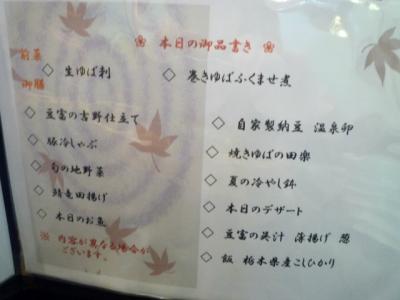 ❀ 本日の御品書き ❀
前菜
◇ 生ゆば刺
◇ 巻きゆばふくませ煮
御膳
◇ 豆富の吉野仕立て
◇ 自家製納豆 温泉卵
◇ 豚冷しゃぶ
◇ 焼きゆばの田楽
◇ 旬の地野菜
◇ 夏の冷やし鉢
◇ 鯖竜田揚げ
◇ 本日のデザート
◇ 本日のお魚
◇ 豆富の呉汁 薄揚げ 葱
※ 内容が異なる場合が
ございます。
◇ 飯 栃木県産こしひかり